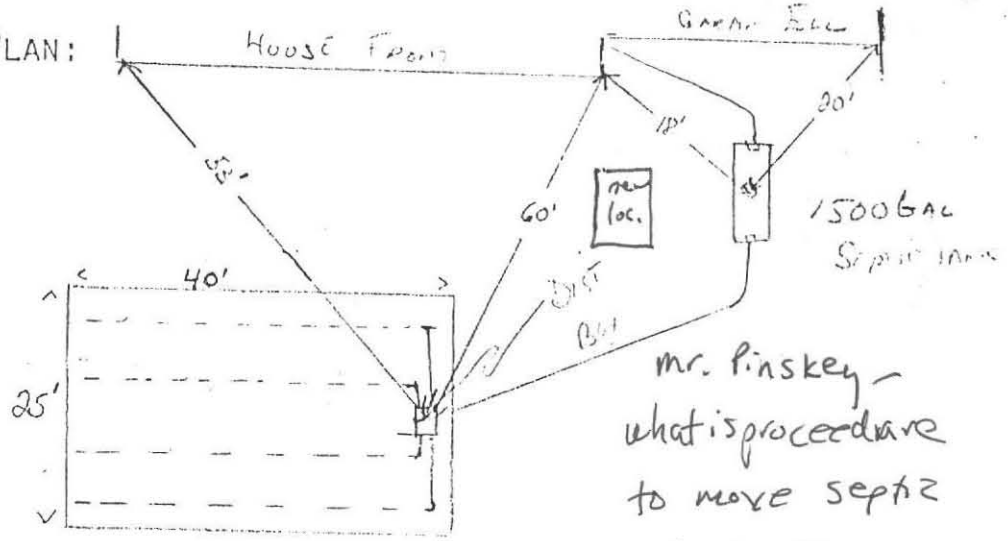 LAN:
HOUSE FRONT
GARAGE ELL
53'
60'
18'
20'
new
loc.
1500 GAL
SEPTIC TANK
40'
25'
DIST
Box
mr. Pinskey -
what is proceedure
to move septic